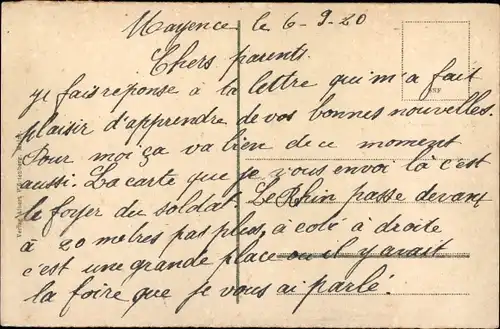 Mayence le 6-9-20
Chers parents.
je fais réponse à la lettre qui m'a fait
plaisir d'apprendre de vos bonnes nouvelles.
Pour moi ça va bien de ce moment
aussi. La carte que je vous envoi là c'est
le foyer du soldat Le Rhin passe devant
à 20 mètres pas plus, à coté à droite
c'est une grande place ou il y avait
la foire que je vous ai parlé.
Verlag Albert